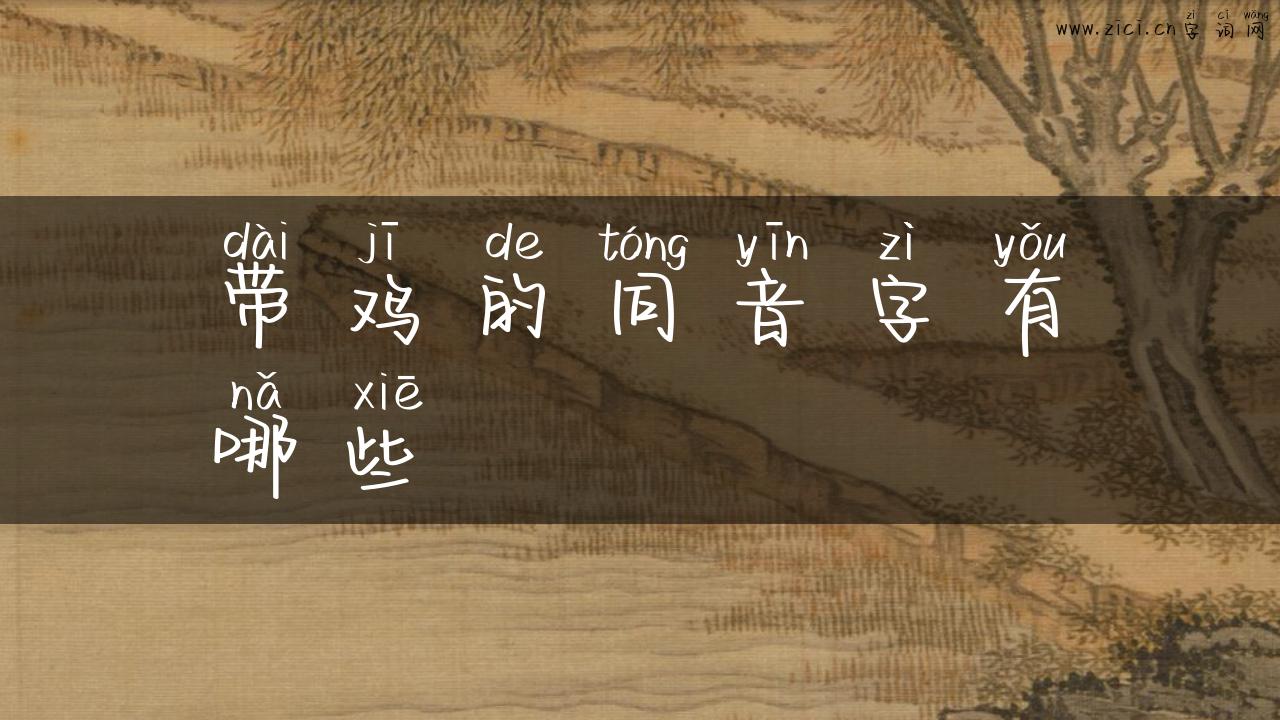 zì cí wǎng
www.zici.cn字词网
dài jī de tóng yīn zì yǒu
带鸡的同音字有
nǎ xiē
哪些